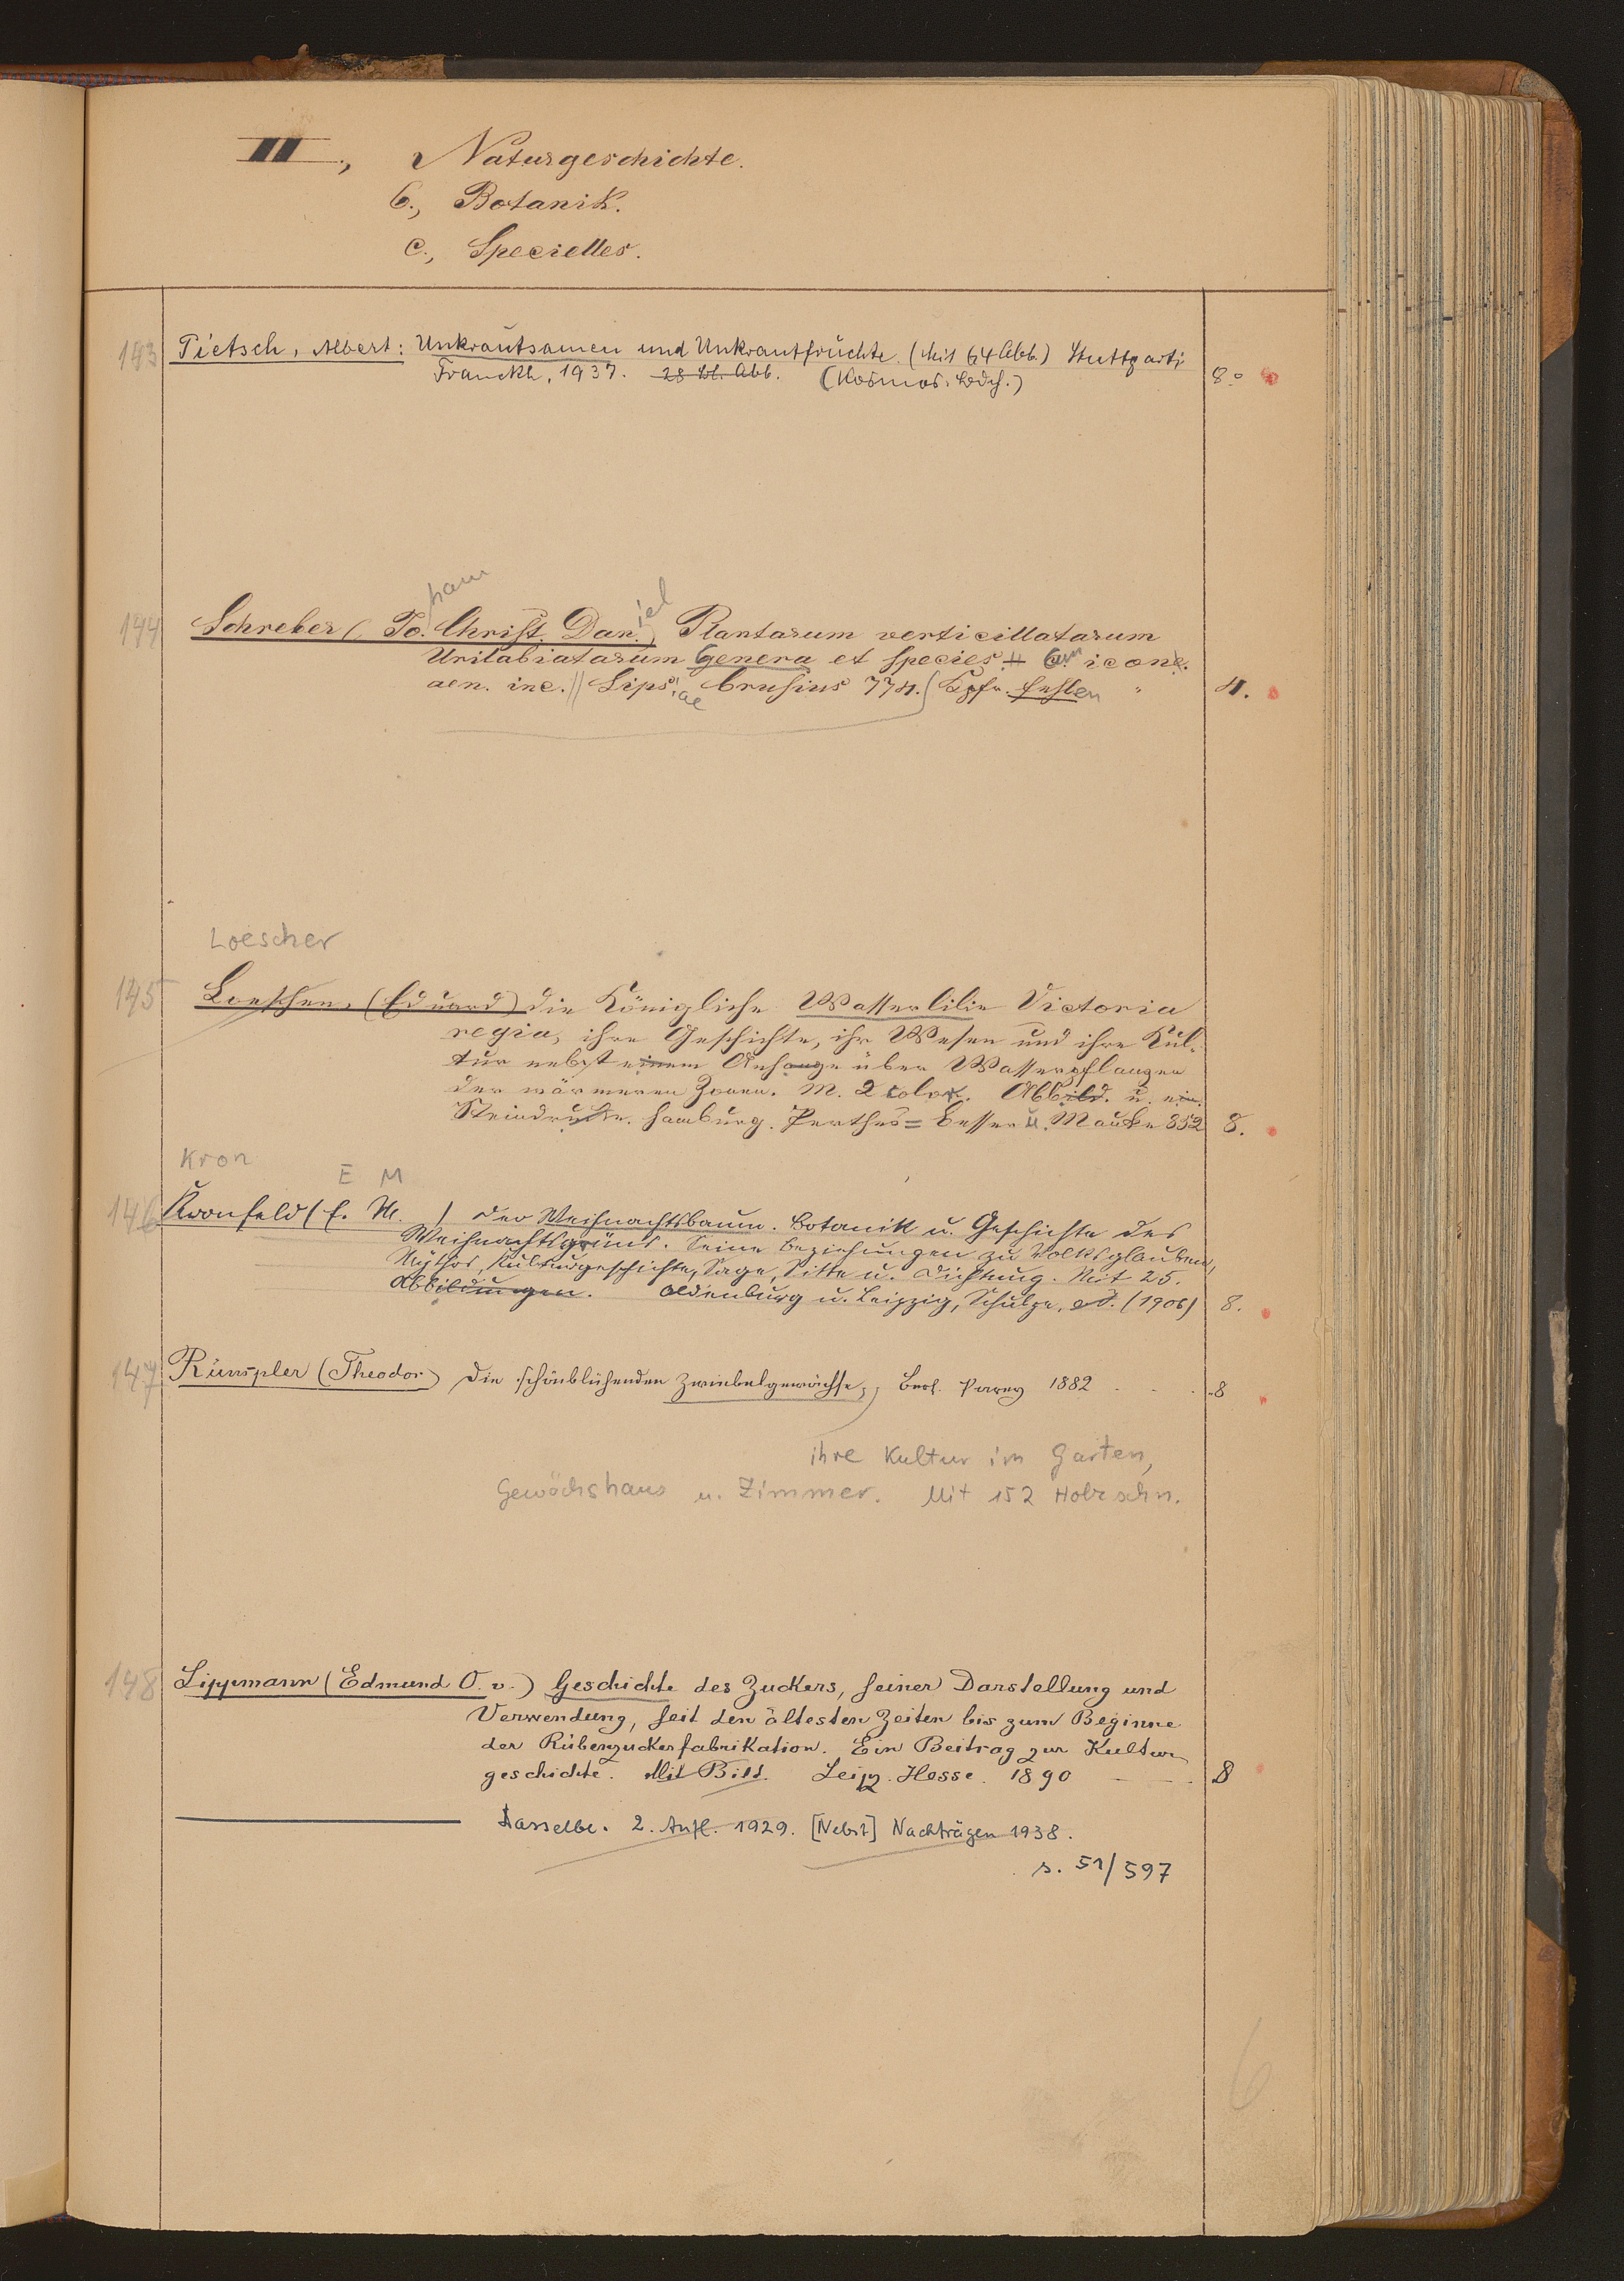 III., Naturgeschichte.
6., Botanik.
c., Specielles.
143 Pietsch, Albert: Unkrautsamen und Unkrautfrüchte. (Mit 64 Abb.) Stuttgart:
Franckh, 1937. 28 Bl. Abb. (Kosmos. Bdch.) 8.°
ham iel
144 Schreber (Jo. Christ. Dan.) Plantarum verticillatarum
Unilabiatarum Genera et Species. Cum icone.
aen. inc. Lipsiae Crusius 774. Kpfr. fehlen 4.
Loescher
145 Loescher, (Eduard) die Königliche Wasserlilie Victoria
regia, ihre Geschichte, ihr Wesen und ihre Kul-
tur nebst einem Anhange über Wasserpflanzen
der wärmeren Zonen. M. 2 color. Abbild. u. ein.
Steindrucke. Hamburg. Perthes= Besser u. Mauke 852 8.
Kron E M
146 Kronfeld (E. M. ) Der Weihnachtsbaum. Botanik u. Geschichte des
Weihnachtsgrüns. Seine Beziehungen zu Volksglauben,
Mythos, Kulturgeschichte, Sage, Sitte u. Dichtung. Mit 25.
Abbildungen. Oldenburg u. Leipzig, Schulze, (1906) 8.
147 Rümpler (Theodor) Die schönblühenden Zwiebelgewächse, Berl. Parey 1882 . . . 8
ihre Kultur im Garten,
Gewächshaus u. Zimmer. Mit 152 Holzschn.
148 Lippmann (Edmund O. v.) Geschichte des Zuckers, seiner Darstellung und
Verwendung, seit den ältesten Zeiten bis zum Beginne
der Rübenzuckerfabrikation. Ein Beitrag zur Kultur
geschichte. Mit Bild. Leipz. Hesse. 1890 8
Dasselbe. 2. Aufl. 1929. [Nebst] Nachträgen 1938.
s. 51/597
6